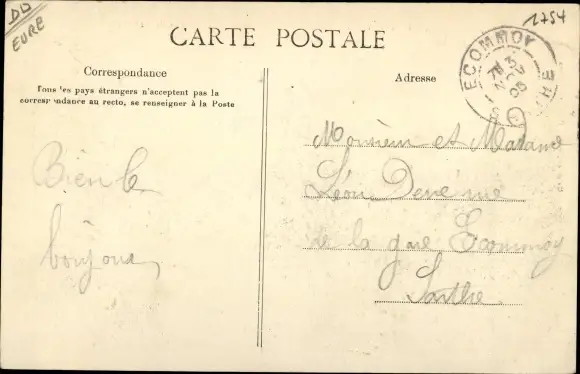 DD
EURE
1754
CARTE POSTALE
Correspondance
Tous les pays étrangers n'acceptent pas la
correspondance au recto, se renseigner à la Poste
Adresse
ECOMMOY
Bien le
bonjour
Monsieur et Madame
Léon Dené rue
de la gare Ecommoy
Sarthe